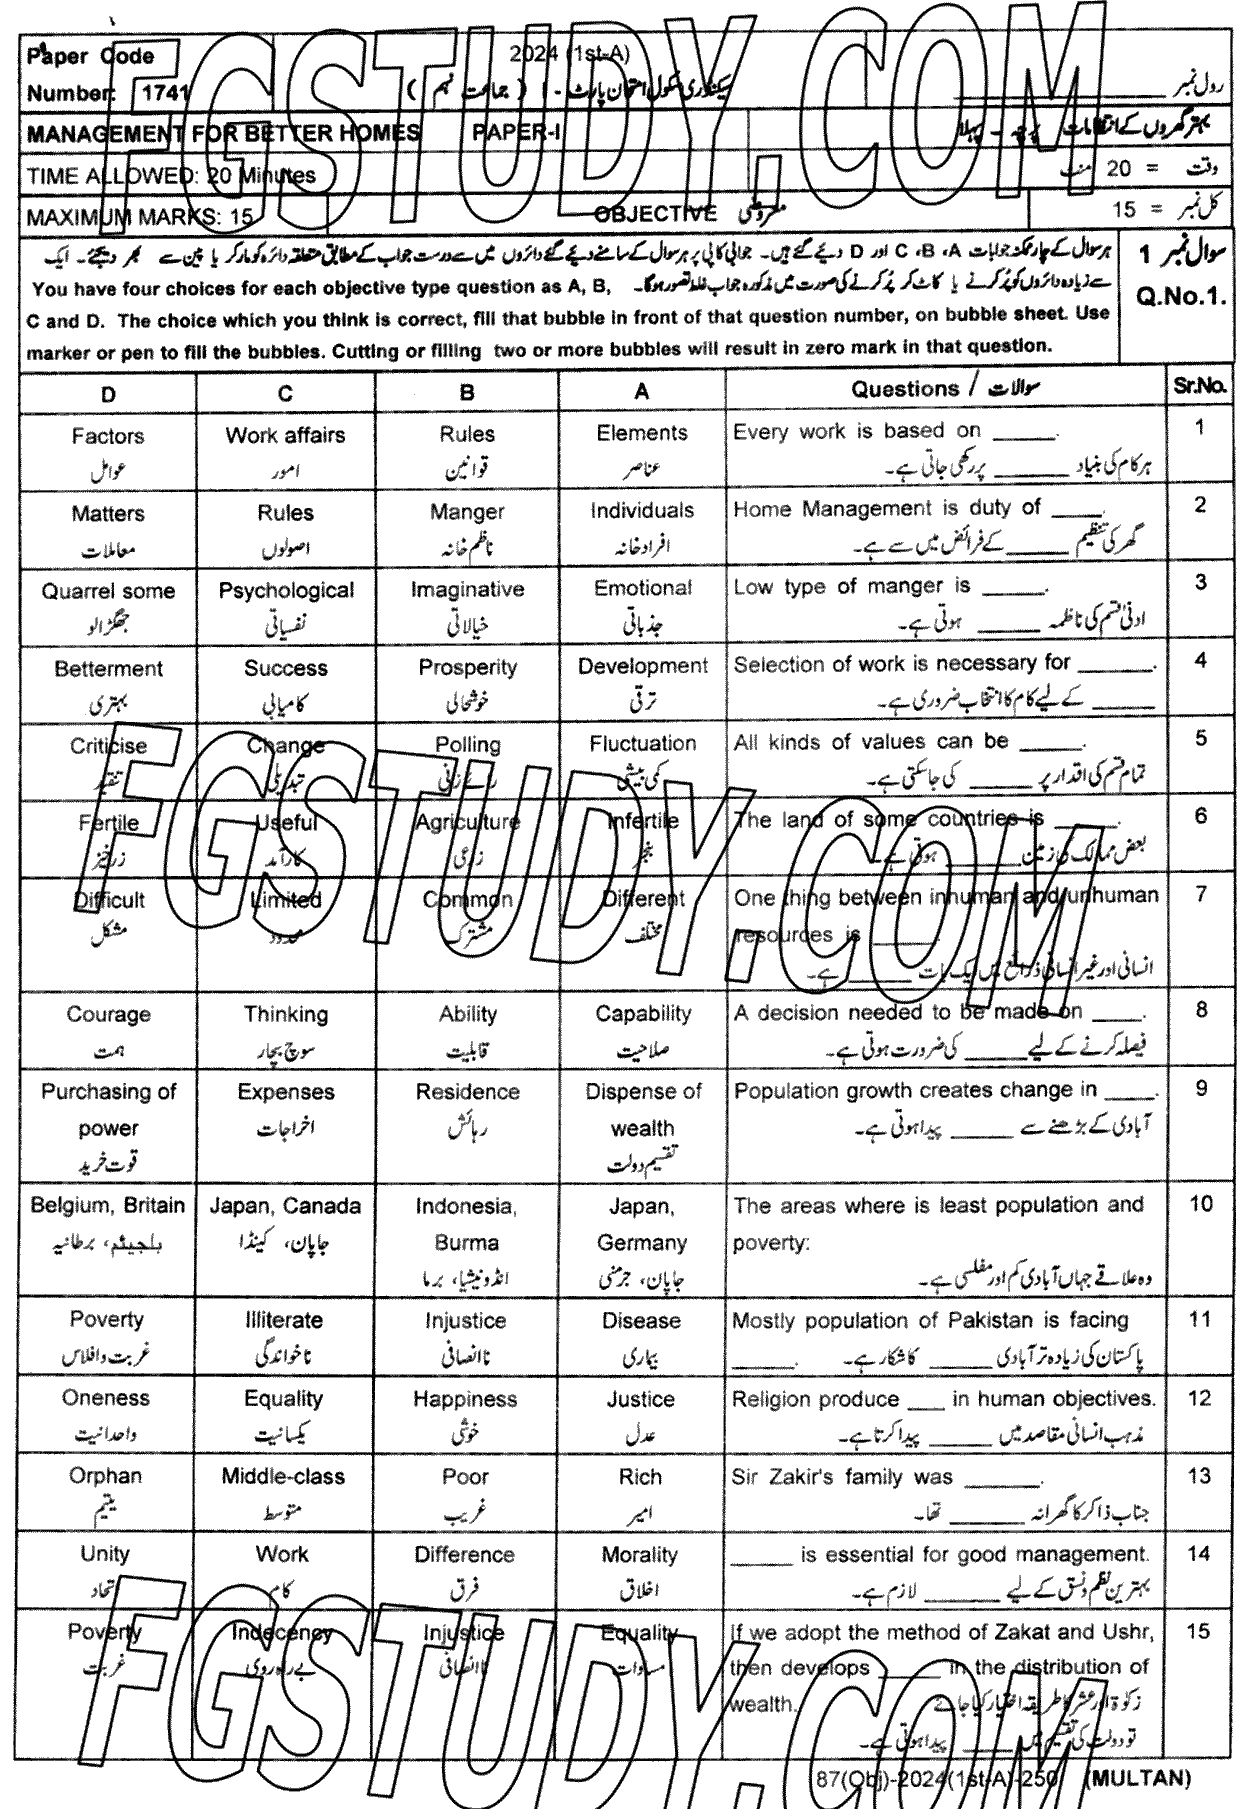 Paper Code
2024 (1st-A)
Number: 1741
سیکنڈری سکول امتحان پارٹ - I ( جماعت نہم )
رول نمبر
MANAGEMENT FOR BETTER HOMES PAPER-I
بہتر گھروں کے انتظامات پرچہ - پہلا
TIME ALLOWED: 20 Minutes
وقت = 20 منٹ
MAXIMUM MARKS: 15
OBJECTIVE معروضی
کل نمبر = 15
سوال نمبر 1
Q.No.1.
ہر سوال کے چار ممکنہ جوابات A، B، C اور D دیئے گئے ہیں۔ جوابی کاپی پر ہر سوال کے سامنے دیئے گئے دائروں میں سے درست جواب کے مطابق متعلقہ دائرہ کو مارکر یا پین سے بھر دیجئے۔ ایک
سے زیادہ دائروں کو پُر کرنے یا کاٹ کر پُر کرنے کی صورت میں مذکورہ جواب غلط تصور ہوگا۔
You have four choices for each objective type question as A, B,
C and D. The choice which you think is correct, fill that bubble in front of that question number, on bubble sheet. Use
marker or pen to fill the bubbles. Cutting or filling two or more bubbles will result in zero mark in that question.
D C B A Questions / سوالات Sr.No.
Factors Work affairs Rules Elements Every work is based on _____. 1
عوامل امور قوانین عناصر ہر کام کی بنیاد _____ پر رکھی جاتی ہے۔
Matters Rules Manger Individuals Home Management is duty of ____. 2
معاملات اصولوں ناظم خانہ افراد خانہ گھر کی تنظیم _____ کے فرائض میں سے ہے۔
Quarrel some Psychological Imaginative Emotional Low type of manger is _____. 3
جھگڑالو نفسیاتی خیالاتی جذباتی ادنیٰ قسم کی ناظمہ _____ ہوتی ہے۔
Betterment Success Prosperity Development Selection of work is necessary for ______. 4
بہتری کامیابی خوشحالی ترقی _____ کے لیے کام کا انتخاب ضروری ہے۔
Criticise Change Polling Fluctuation All kinds of values can be _____. 5
تنقید تبدیلی رائے زنی کمی بیشی تمام قسم کی اقدار پر _____ کی جاسکتی ہے۔
Fertile Useful Agriculture Infertile The land of some countries is _____. 6
زرخیز کارآمد زرعی بنجر بعض ممالک کی زمین _____ ہوتی ہے۔
Difficult Limited Common Different One thing between inhuman and unhuman 7
resources is _____.
مشکل محدود مشترک مختلف
انسانی اور غیر انسانی ذرائع میں ایک بات _____ ہے۔
Courage Thinking Ability Capability A decision needed to be made on ____. 8
ہمت سوچ بچار قابلیت صلاحیت فیصلہ کرنے کے لیے _____ کی ضرورت ہوتی ہے۔
Purchasing of Expenses Residence Dispense of Population growth creates change in ____. 9
power wealth
قوت خرید اخراجات رہائش تقسیم دولت آبادی کے بڑھنے سے _____ پیدا ہوتی ہے۔
Belgium, Britain Japan, Canada Indonesia, Japan, The areas where is least population and 10
Burma Germany poverty:
بلجیئم، برطانیہ جاپان، کینڈا انڈونیشیا، برما جاپان، جرمنی وہ علاقے جہاں آبادی کم اور مفلسی ہے۔
Poverty Illiterate Injustice Disease Mostly population of Pakistan is facing 11
_____.
غربت و افلاس ناخواندگی ناانصافی بیماری پاکستان کی زیادہ تر آبادی _____ کا شکار ہے۔
Oneness Equality Happiness Justice Religion produce ___ in human objectives. 12
واحدانیت یکسانیت خوشی عدل مذہب انسانی مقاصد میں _____ پیدا کرتا ہے۔
Orphan Middle-class Poor Rich Sir Zakir's family was ______. 13
یتیم متوسط غریب امیر جناب ذاکر کا گھرانہ _____ تھا۔
Unity Work Difference Morality _____ is essential for good management. 14
اتحاد کام فرق اخلاق بہترین نظم و نسق کے لیے _____ لازم ہے۔
Poverty Indecency Injustice Equality If we adopt the method of Zakat and Ushr, 15
then develops _____ in the distribution of
wealth.
غربت بے راہ روی ناانصافی مساوات زکوٰۃ اور عشر کا طریقہ اختیار کیا جائے
تو دولت کی تقسیم میں _____ پیدا ہوتی ہے۔
87(Obj)-2024(1st-A)-250 (MULTAN)
FGSTUDY.COM
FGSTUDY.COM
FGSTUDY.COM